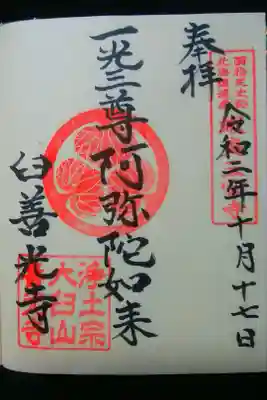 奉拝
令和二年十月十七日
一光三尊阿弥陀如来
臼善光寺
浄土宗
大臼山